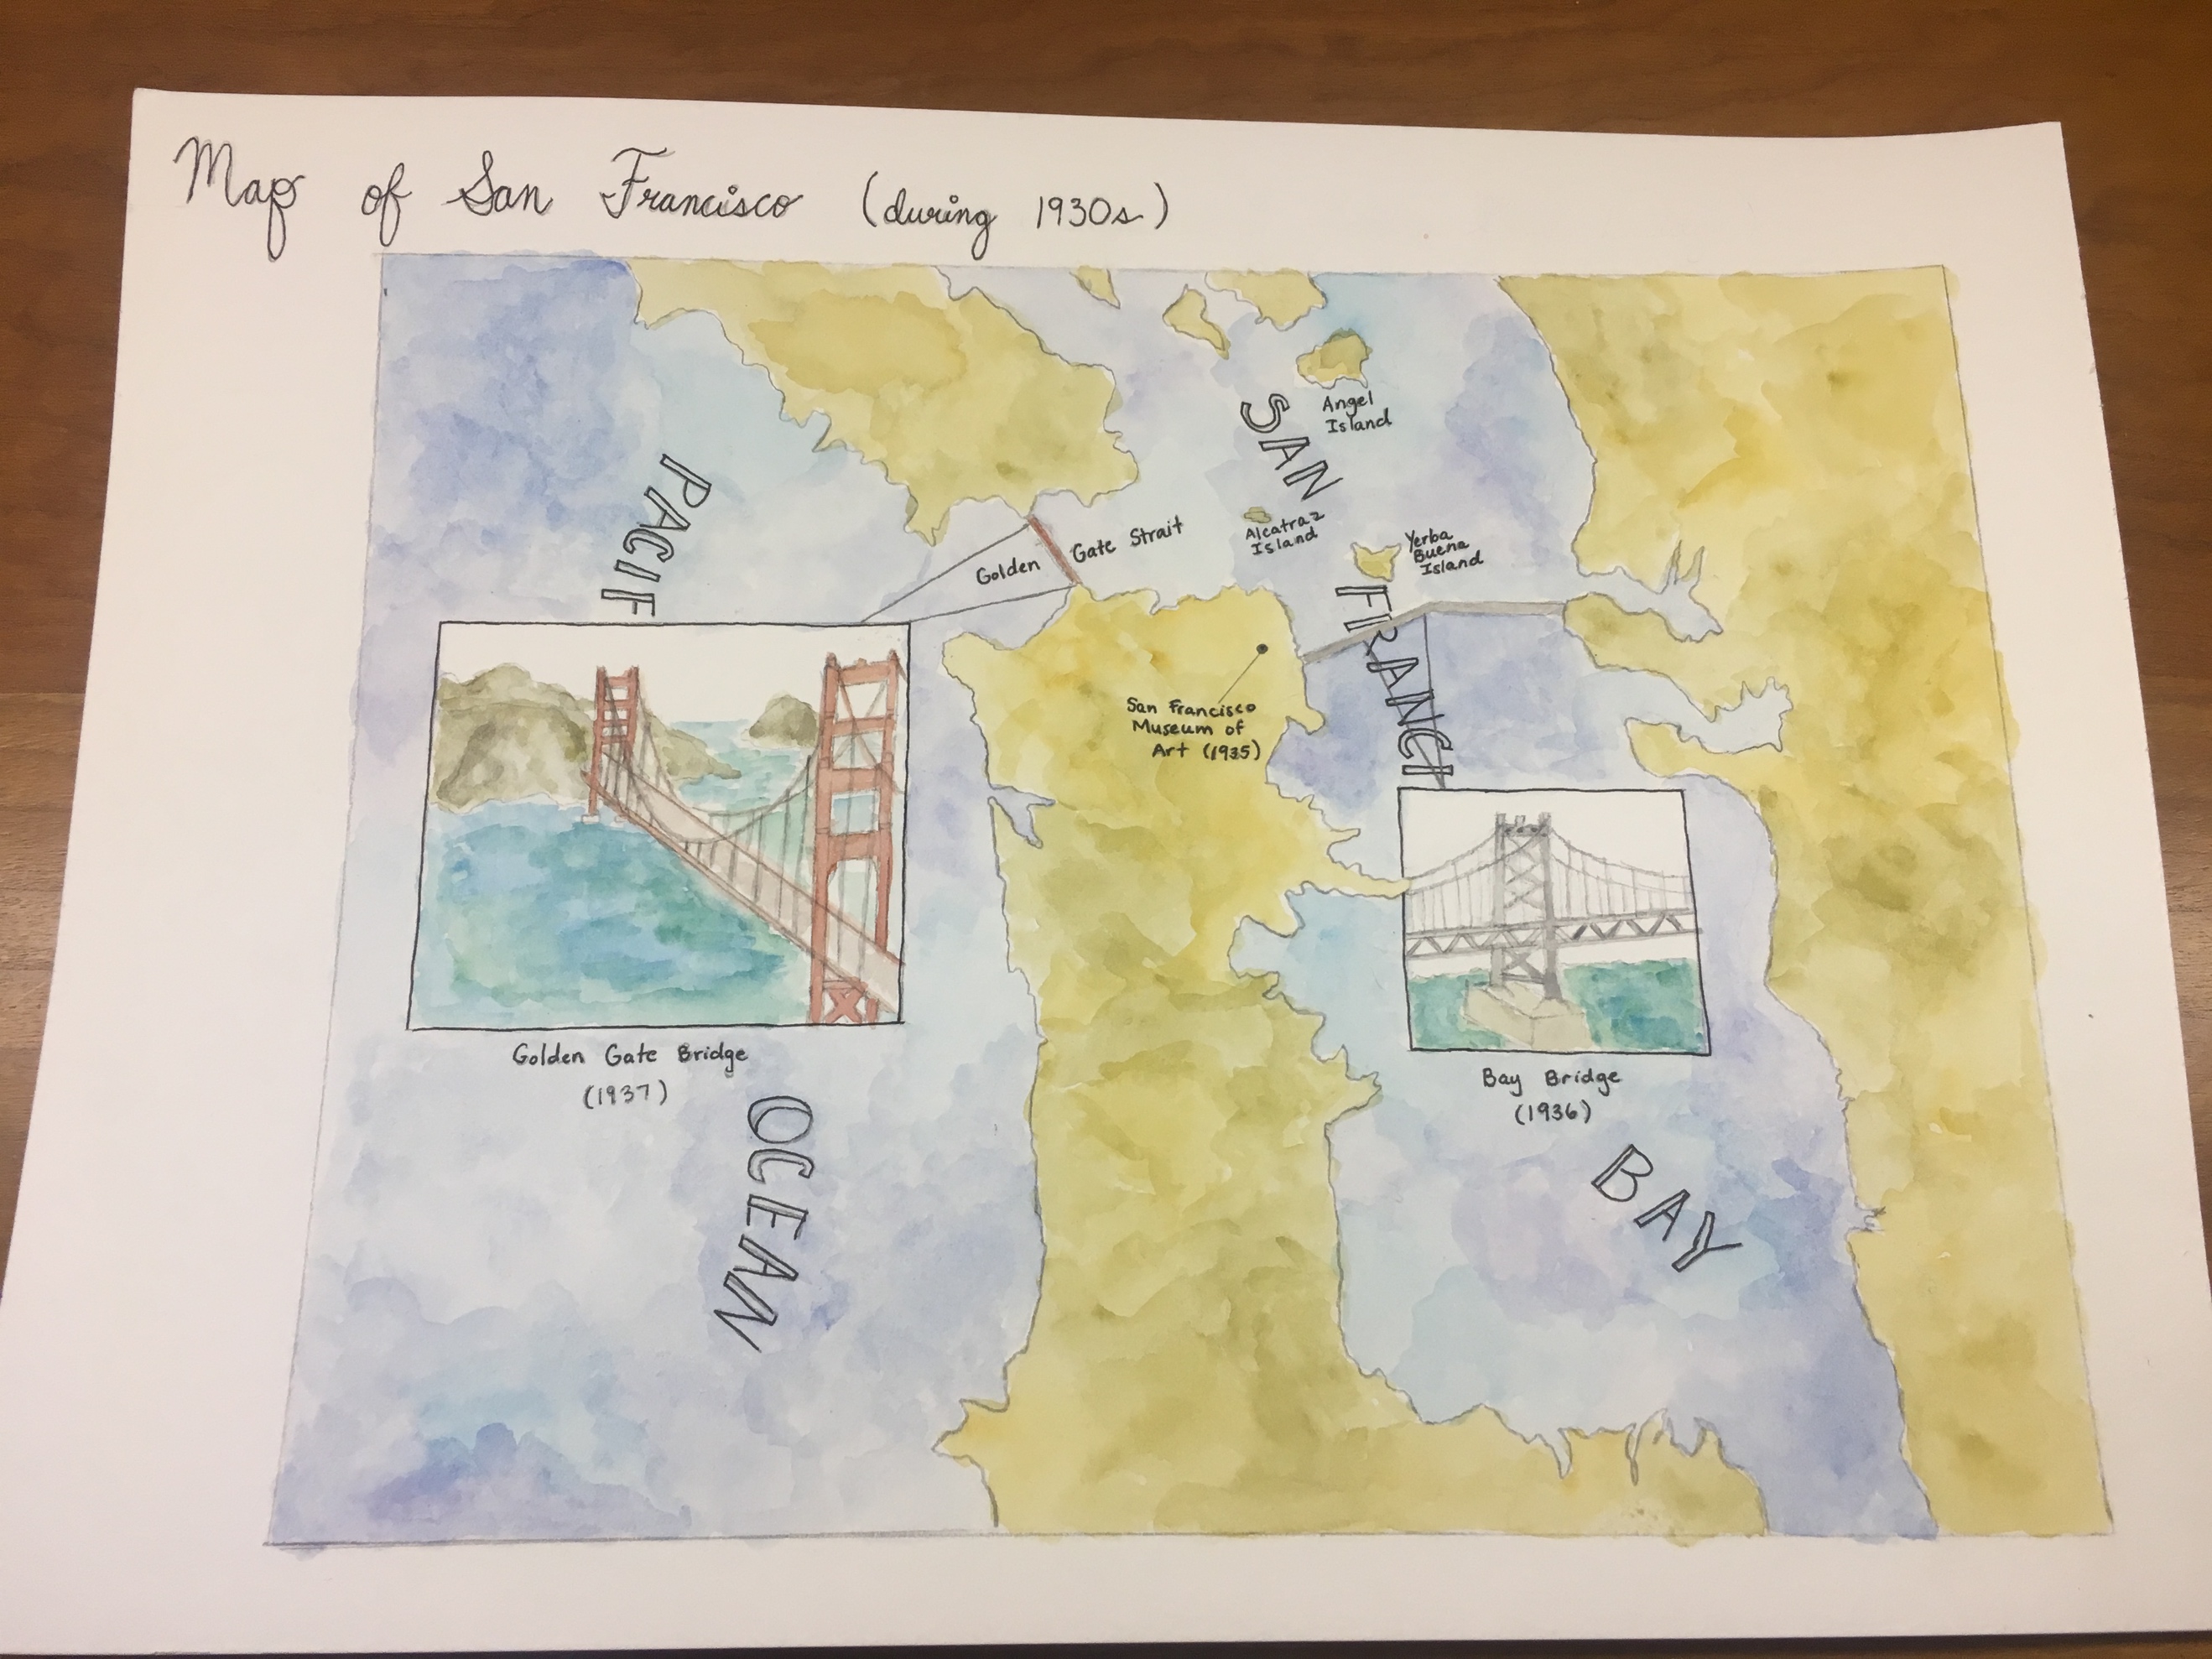 Map of San Francisco (during 1930s)
PACIF
OCEAN
SAN
FRANCI
BAY
Angel
Island
Alcatraz
Island
Yerba
Buena
Island
Golden Gate Strait
San Francisco
Museum of
Art (1935)
Golden Gate Bridge
(1937)
Bay Bridge
(1936)